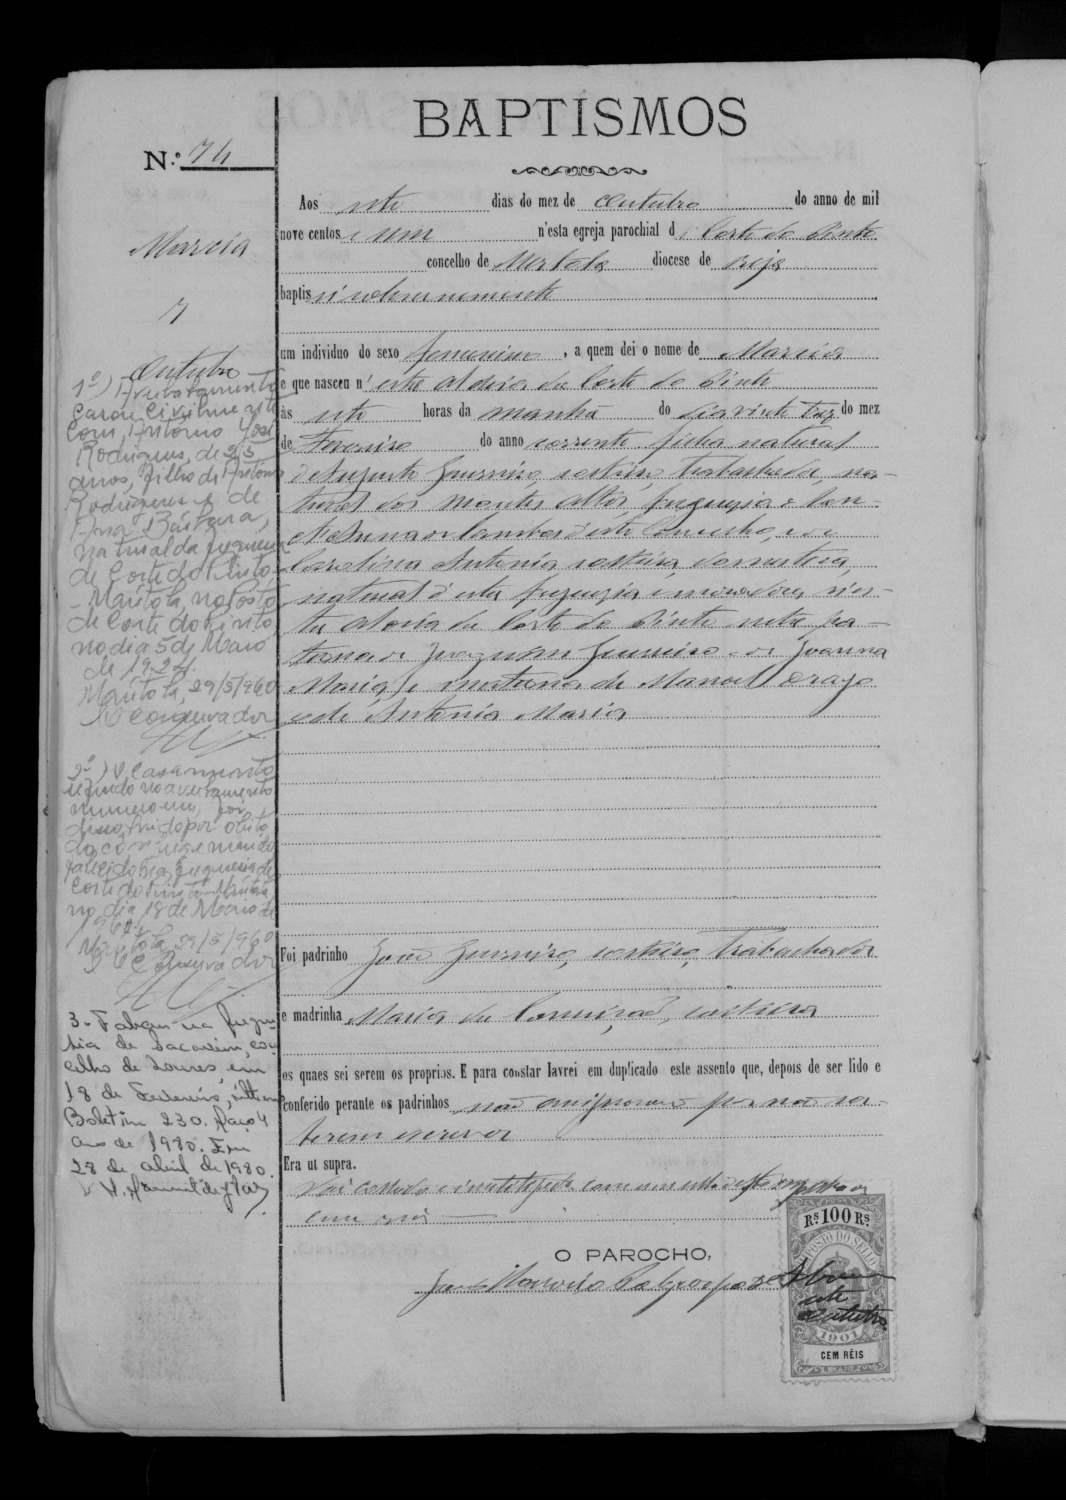 BAPTISMOS
N.º 74
Marcia
7
Outubro
Aos sete dias do mez de Outubro do anno de mil
nove centos e um n'esta egreja parochial d e Corte do Pinto
concelho de Mertola diocese de Beja
baptisei solemnemente
um individuo do sexo femenino, a quem dei o nome de Marcia
e que nasceu n' esta aldeia da Corte do Pinto
ás sete horas da manhã do dia vinte tres do mez
de Fevereiro do anno corrente filha natural
d'Augusto Guerreiro, solteiro, trabalhador, na-
tural dos Montes Altos, freguezia
d'este Concelho, e de
Carolina Antonia solteira, domestica,
natural d'esta freguezia e moradora n'es-
ta aldeia da Corte do Pinto neta pa-
terna de Joaquim Guerreiro e de Joanna
Maria, e materna de Manoel Drago
e de Antonia Maria
Foi padrinho João Guerreiro, solteiro, trabalhador
e madrinha Maria da Conceição, solteira
os quaes sei serem os proprios. E para constar lavrei em duplicado este assento que, depois de ser lido e
conferido perante os padrinhos não assignaram por não sa-
berem escrever
Era ut supra.
Vai collada e inutilisada uma estampilha de
cem reis
O PAROCHO,
RS 100 RS
IMPOSTO DO SELLO
sete
Outubro
1901
CEM RÉIS
1º) Averbamento
Casou civilmente
com, António José
Rodrigues, de 25
anos, filho de António
Rodrigues e de
Ana Bárbara,
natural da freguesia
de Corte do Pinto,
- Mértola, no Posto
de Corte do Pinto,
no dia 5 de Maio
de 1924.
Mértola, 29/5/960
O Conservador
2º) O casamento
referido no averbamento
numero um, foi
dissolvido por obito
do conjuge marido
falecido na freguesia de
Corte do Pinto - Mértola
no dia 18 de Maio de
Mértola, 29/5/960
O Conservador
3 - Faleceu na fregue-
sia de Sacavém, con-
celho de Loures, em
18 de Fevereiro, último
Boletim 230. Maço 4
ano de 1980. Em
28 de abril de 1980.